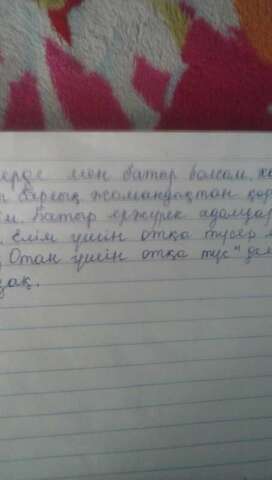 ерде мен батыр болсам, ха
барлық жамандықтан қор
ім. Батыр ержүрек адамдар
Елім үшін отқа түсер
Отан үшін отқа түс" де
зақ.